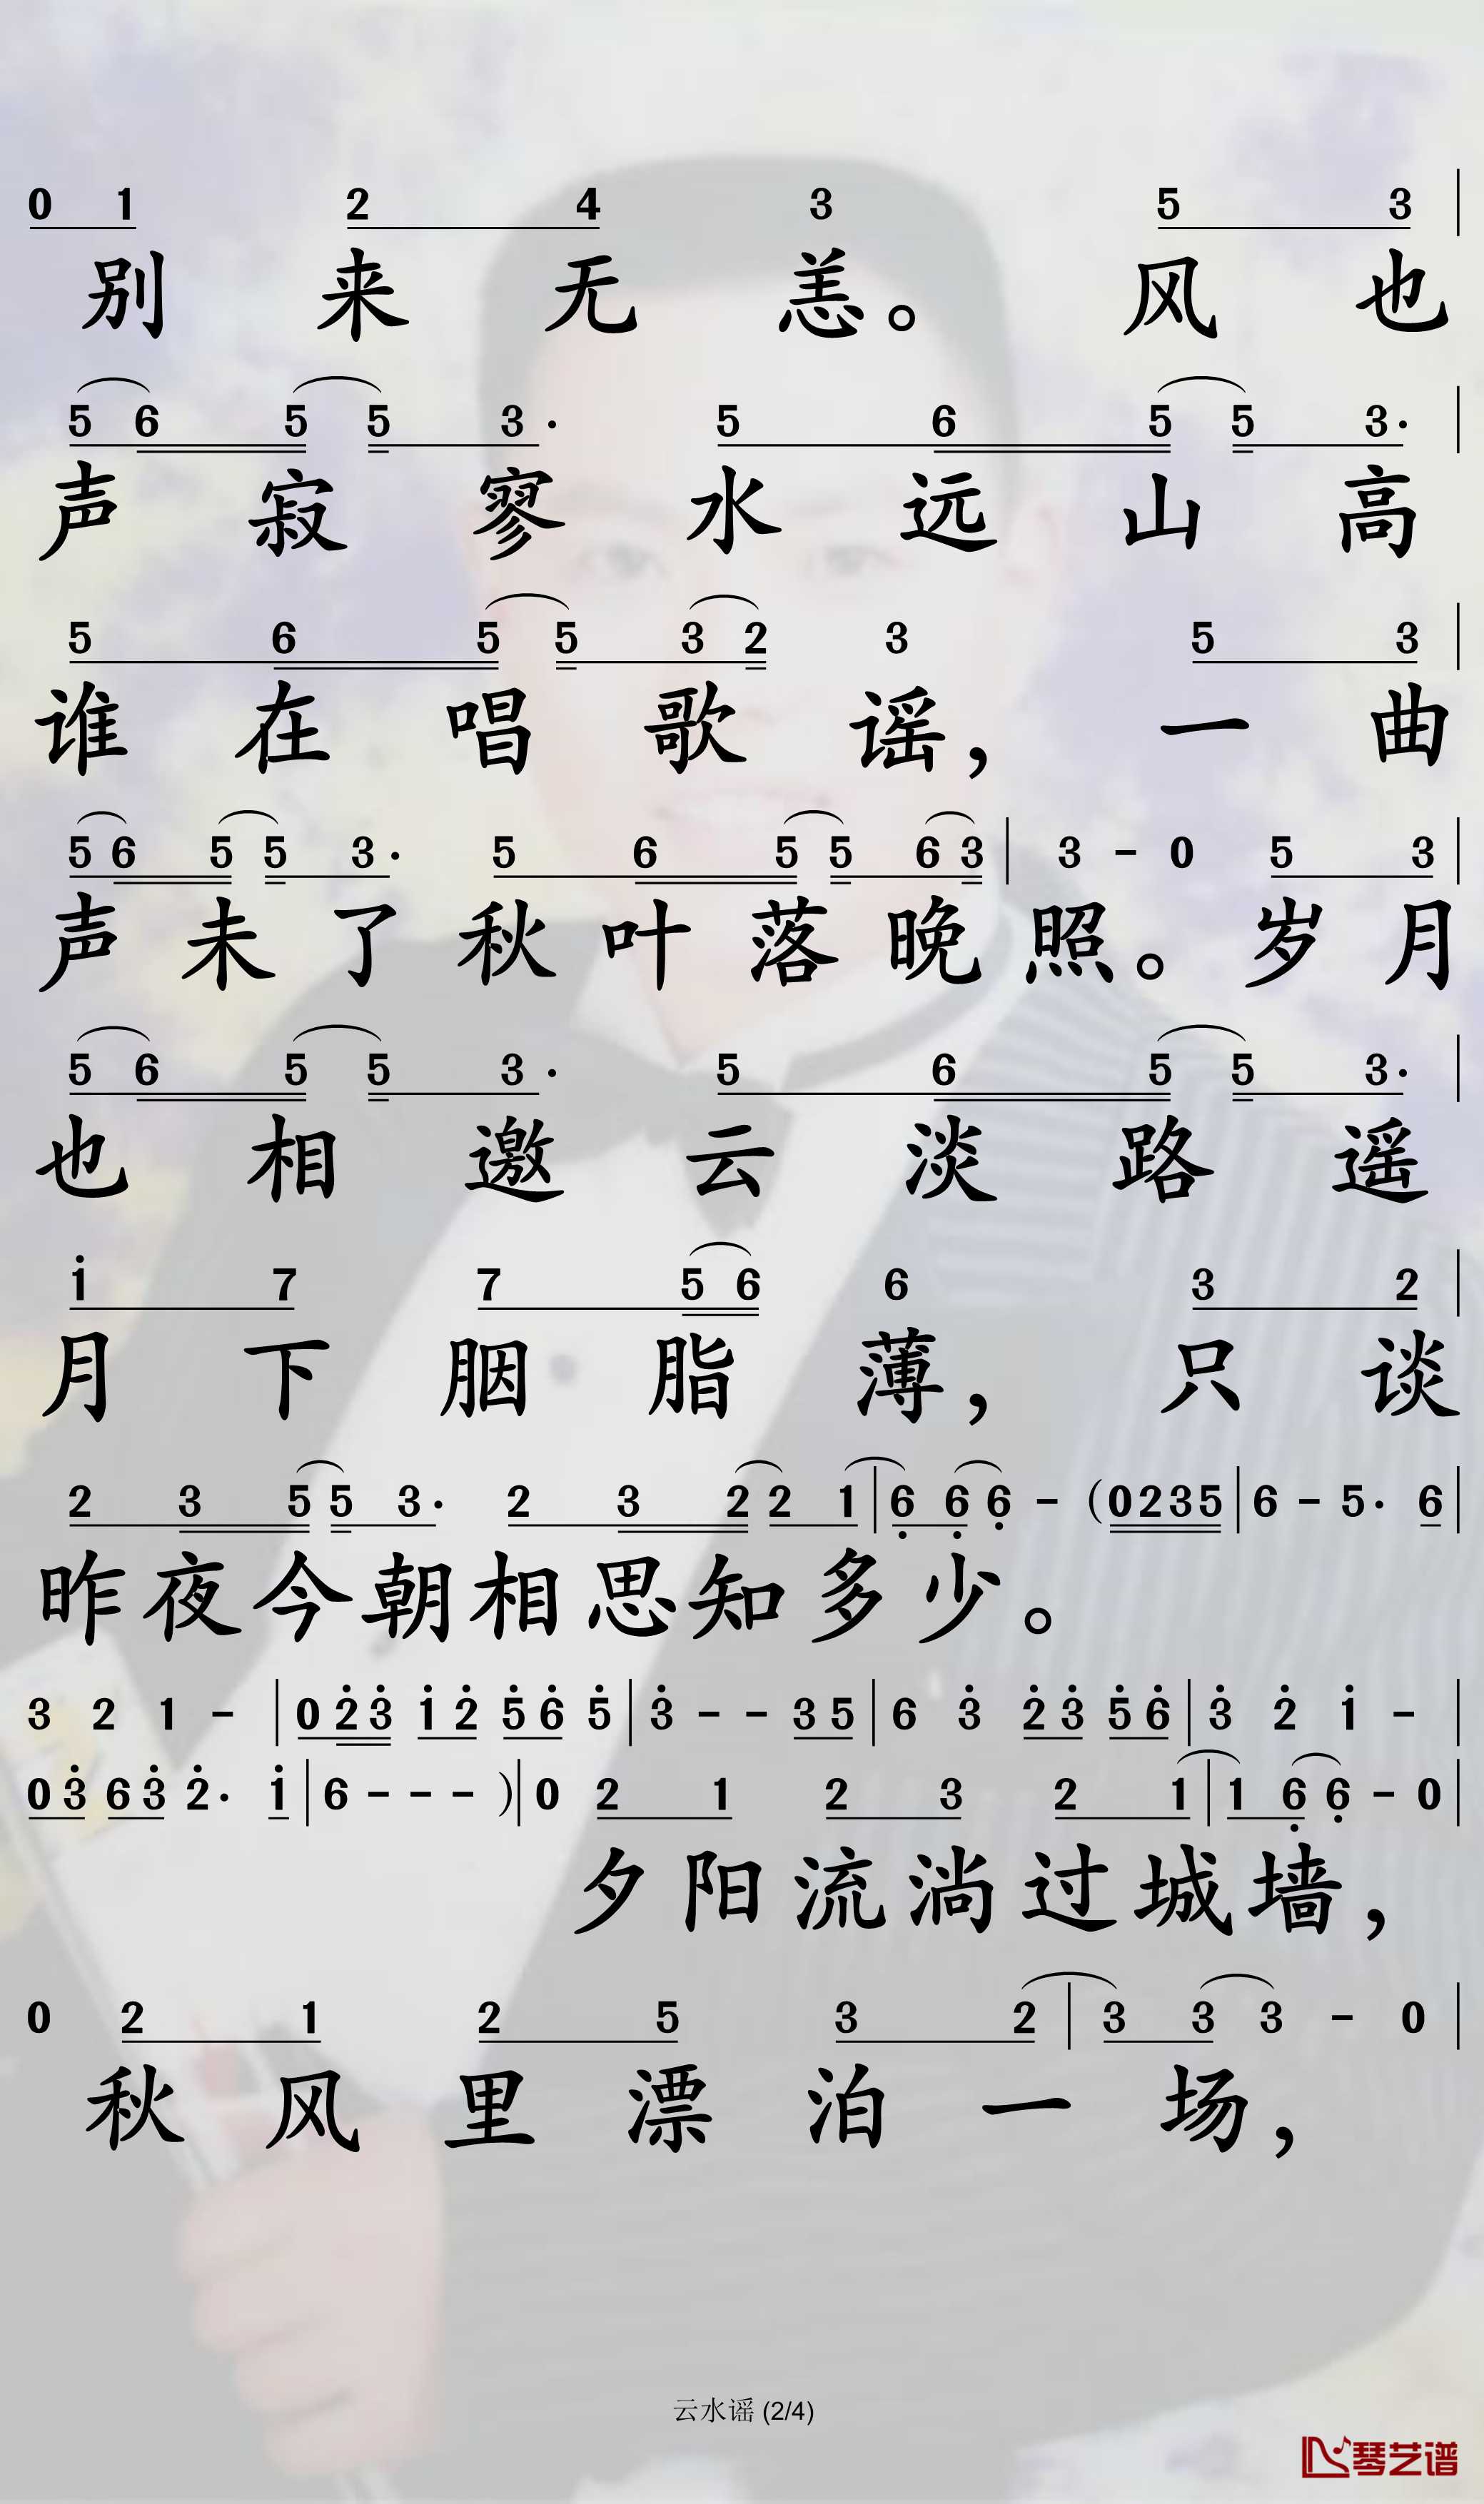 0 1 2 4 3 5 3 |
别来无恙。风也
5 6 5 5 3· 5 6 5 5 3· |
声寂寥水远山高
5 6 5 5 3 2 3 5 3 |
谁在唱歌谣，一曲
5 6 5 5 3· 5 6 5 5 6 3 | 3 - 0 5 3 |
声未了秋叶落晚照。岁月
5 6 5 5 3· 5 6 5 5 3· |
也相邀云淡路遥
i 7 7 5 6 6 3 2 |
月下胭脂薄，只谈
2 3 5 5 3· 2 3 2 2 1 | 6̣ 6̣ 6̣ - (0 2 3 5 | 6 - 5· 6 |
昨夜今朝相思知多少。
3 2 1 - | 0 2̇ 3̇ 1̇ 2̇ 5̇ 6̇ 5̇ | 3̇ - - 3 5 | 6 3̇ 2̇ 3̇ 5̇ 6̇ | 3̇ 2̇ 1̇ - |
0 3̇ 6 3̇ 2̇· 1̇ | 6 - - - ) | 0 2 1 2 3 2 1 | 1 6̣ 6̣ - 0 |
夕阳流淌过城墙，
0 2 1 2 5 3 2 | 3 3 3 - 0 |
秋风里漂泊一场，
云水谣 (2/4)
琴艺谱